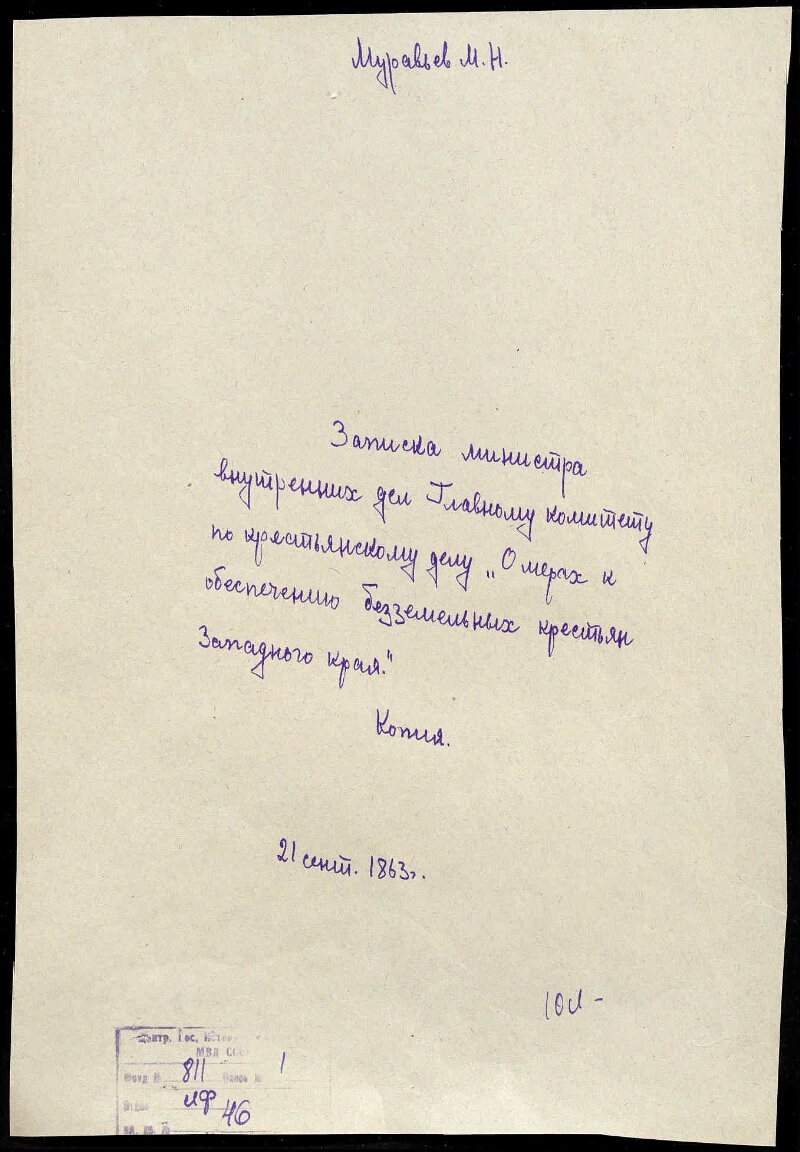 Муравьев М.Н.
Записка министра
внутренних дел Главному комитету
по крестьянскому делу „О мерах к
обеспечению безземельных крестьян
Западного края."
Копия.
21 сент. 1863 г.
10 л -
Центр. Гос. Истор
МВД ССС
Фонд № 811 Опись № 1
46